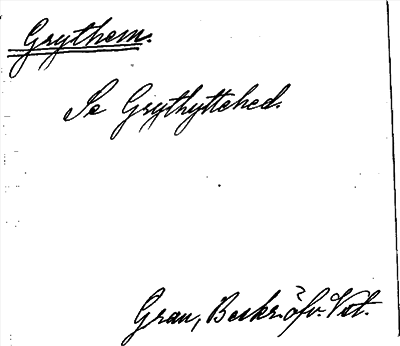 Grythem.
Se Grythyttehed.
Grau, Beskr. öfv. Vstl.